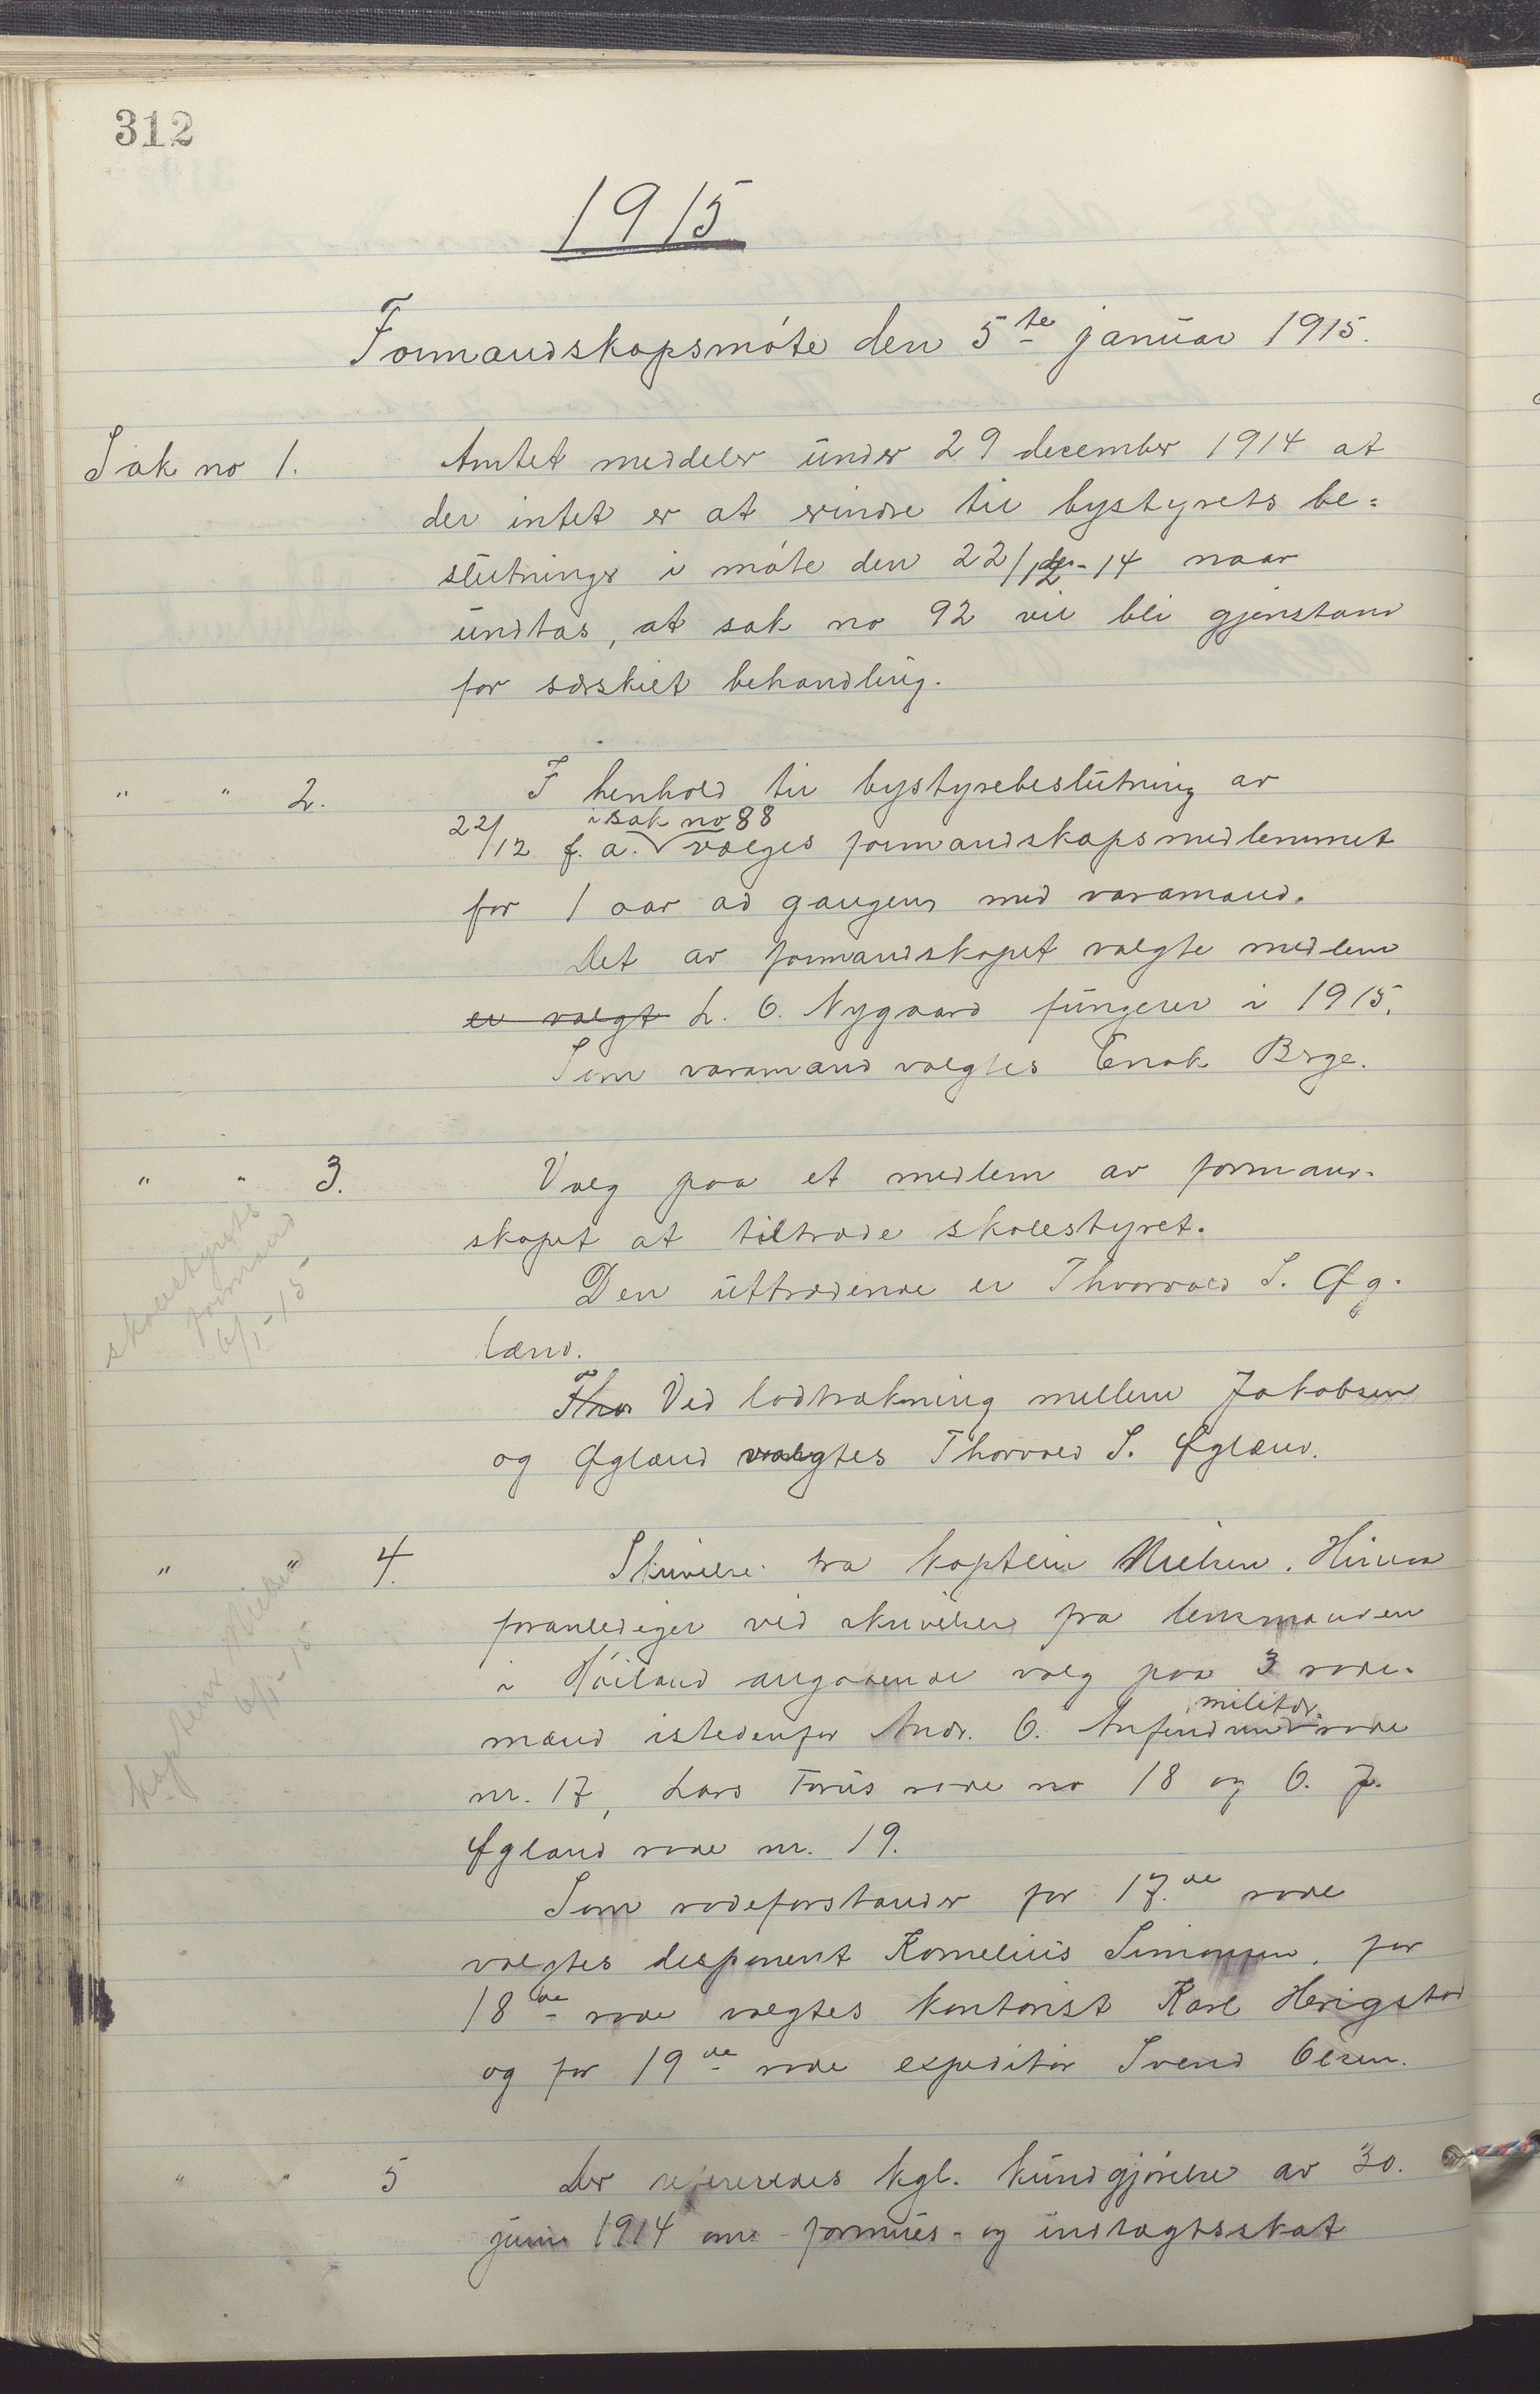 312
1915
Formandskapsmöte den 5te januar 1915.
Sak no 1. Amtet meddeler under 29 december 1914 at
der intet er at erindre til bystyrets be=
slutninger i möte den 22/12-14 naar
undtas, at sak no 92 vil bli gjenstand
for særskilt behandling.
" " 2. I henhold til bystyrebeslutning av
i sak no 88
22/12 f. a. vælges formandskapsmedlemmet
for 1 aar ad gangen med varamand.
Det av formandskapet valgte medlem
er valgt L. O. Nygaard fungerer i 1915.
Som varamand valgtes Enok Brge.
" " 3. Valg paa et medlem av formand-
skapet at tiltræde skolestyret.
skolestyrets
formand
6/1-15
Den uttrædende er Thorvald S. Øg-
land.
Thor Ved lodtrækning mellem Jakobsen
og Øgland valgtes Thorvald S. Øgland.
" " 4. Skrivelse fra kaptein Nielsen. Hinna
foranlediget ved skrivelse fra lensmanden
i Höiland angaaende valg paa 3 rode-
kaptein Nielsen
6/1-15
militær
mænd istedenfor Andr. O. Anfindsen rode
nr. 17, Lars Torüs rode no 18 og O. J.
Øgland rode nr. 19.
Som rodeforstander for 17.de rode
valgtes disponent Kornelius Simonsen, for
18de rode valgtes kontorist Karl Herigstad
og for 19de rode expeditör Svend Olsen.
" " 5 Der refereredes kgl. kundgjörelse av 30.
juni 1914 om formues- og indtægtsskat